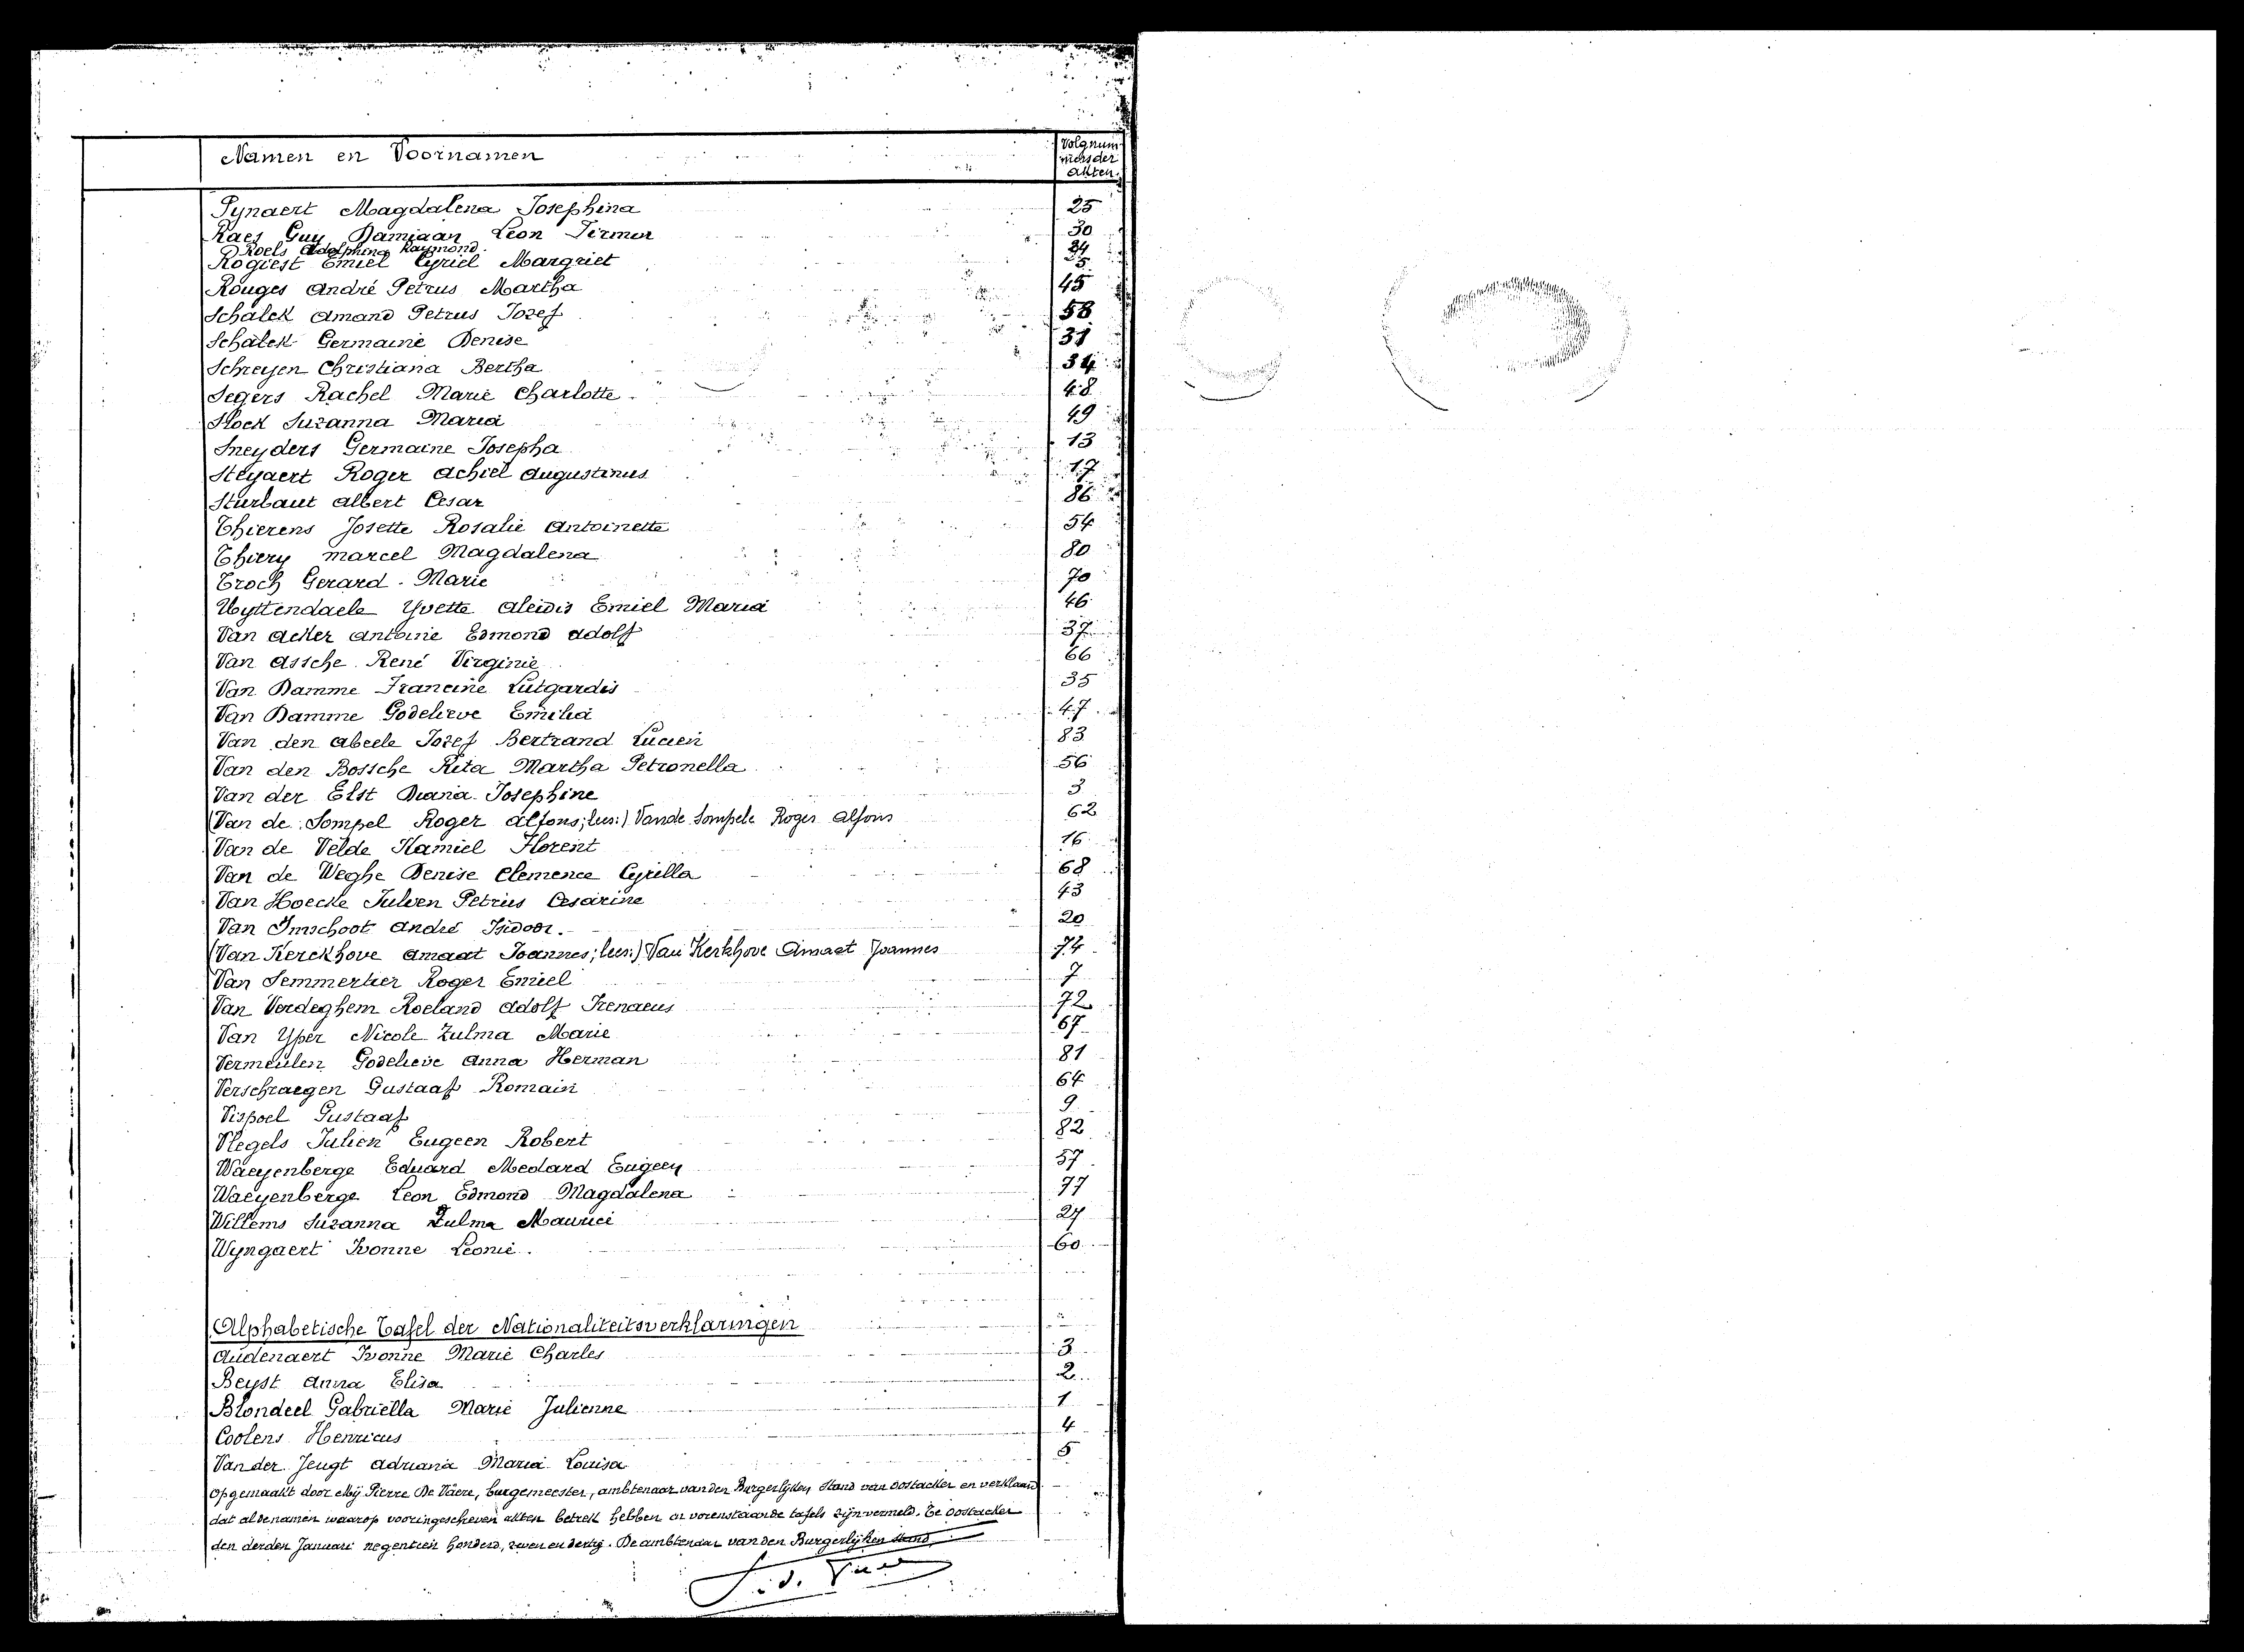 Namen en Voornamen Volgnum-
mers der
akten.
Pynaert Magdalena Josephina 25
Raes Guy Damiaan Leon Firmin 30
Roels Adolphina Raymond
Rogiest Emiel Cyriel Margriet
Rouges André Petrus Martha 45
Schalck Amand Petrus Jozef 58
Schalck Germaine Denise 31
Schreyen Christiana Bertha 34
Segers Rachel Marie Charlotte 48
Slock Suzanna Maria 49
Sneyders Germaine Josepha 13
Steyaert Roger Achiel Augustinus 17
Sturbaut Albert Cesar 86
Thierens Josette Rosalie Antoinette 54
Thiery Marcel Magdalena 80
Troch Gerard Marie 70
Uyttendaele Yvette Aleidis Emiel Maria 46
Van Acker Antoine Edmond Adolf 37
Van Assche René Virginie 66
Van Damme Francine Lutgardis 35
Van Damme Godelieve Emilia 47
Van den Abeele Jozef Bertrand Lucien 83
Van den Bossche Rita Martha Petronella 56
Van der Elst Diana Josephine 3
(Van de Sompel Roger Alfons; lees:) Van de Sompele Roger Alfons 62
Van de Velde Kamiel Florent 16
Van de Weghe Denise Clemence Cyrilla 68
Van Hoecke Julien Petrus Cesarine 43
Van Imschoot André Isidoor. 20
(Van Kerckhove Amaat Joannes; lees:) Van Kerkhove Amaat Joannes 74
Van Semmertier Roger Emiel 7
Van Verdeghem Roeland Adolf Irenaeus 72
Van Yper Nicole Zulma Marie 67
Vermeulen Godelieve Anna Herman 81
Verschraegen Gustaaf Romain 64
Vispoel Gustaaf 9
Vlegels Julien Eugeen Robert 82
Waeyenberge Eduard Medard Eugeen 57
Waeyenberge Leon Edmond Magdalena 77
Willems Suzanna Zulma Maurice 27
Wyngaert Ivonne Leonie. 60
Alphabetische Tafel der Nationaliteitsverklaringen
Audenaert Ivonne Marie Charles 3
Beyst Anna Elisa 2
Blondeel Gabriella Marie Julienne 1
Coolens Henricus 4
Van der Jeugt Adriana Maria Louisa 5
Opgemaakt door Mij Pierre De Vaere, burgemeester, ambtenaar van den Burgerlijken Stand van Oostacker en verklaard
dat al de namen waarop vooringeschreven akten betrek hebben in vorenstaande tafels zijn vermeld. Te Oostacker
den derden Januari negentien honderd, zeven en dertig. De ambtenaar van den Burgerlijken Stand